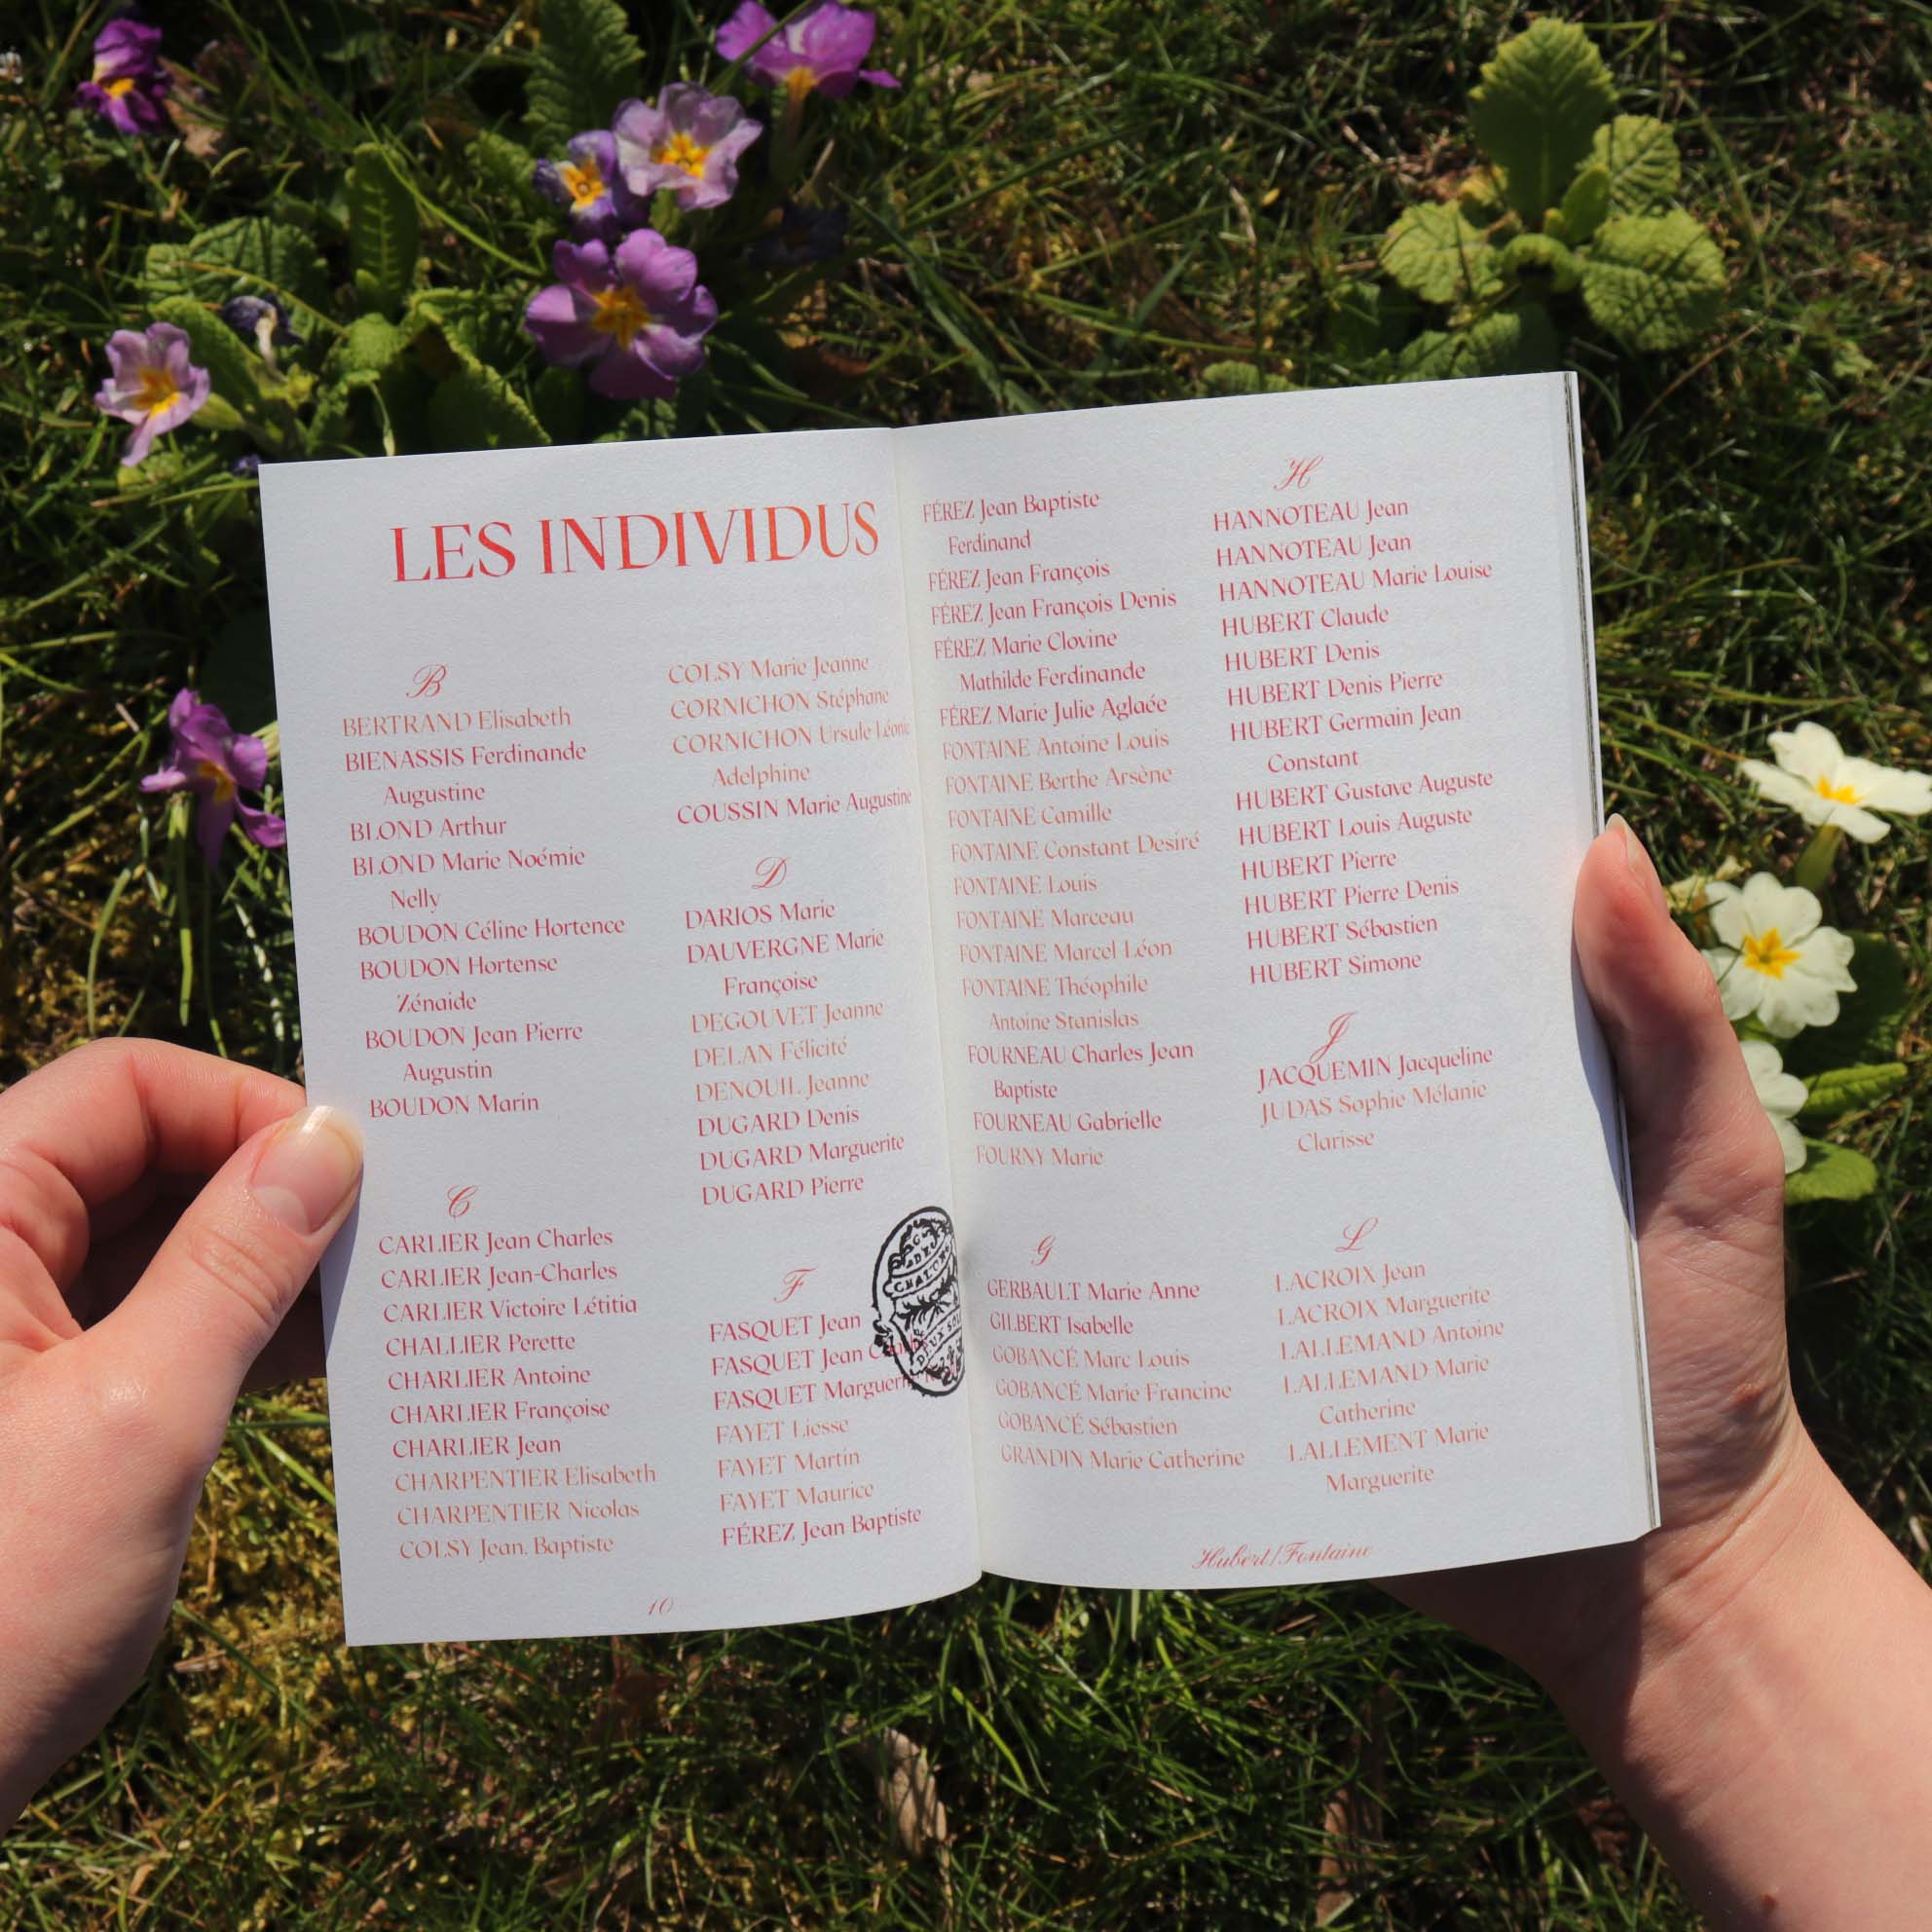 LES INDIVIDUS
B
BERTRAND Elisabeth
BIENASSIS Ferdinande
Augustine
BLOND Arthur
BLOND Marie Noémie
Nelly
BOUDON Céline Hortence
BOUDON Hortense
Zénaide
BOUDON Jean Pierre
Augustin
BOUDON Marin
C
CARLIER Jean Charles
CARLIER Jean-Charles
CARLIER Victoire Létitia
CHALLIER Perette
CHARLIER Antoine
CHARLIER Françoise
CHARLIER Jean
CHARPENTIER Elisabeth
CHARPENTIER Nicolas
COLSY Jean. Baptiste
COLSY Marie Jeanne
CORNICHON Stéphane
CORNICHON Ursule Léonie
Adelphine
COUSSIN Marie Augustine
D
DARIOS Marie
DAUVERGNE Marie
Françoise
DEGOUVET Jeanne
DELAN Félicité
DENOUIL Jeanne
DUGARD Denis
DUGARD Marguerite
DUGARD Pierre
F
FASQUET Jean
FASQUET Jean
FASQUET Marguerite
FAYET Liesse
FAYET Martin
FAYET Maurice
FÉREZ Jean Baptiste
DE
CHALONS
DEUX SOLS
10
FÉREZ Jean Baptiste
Ferdinand
FÉREZ Jean François
FÉREZ Jean François Denis
FÉREZ Marie Clovine
Mathilde Ferdinande
FÉREZ Marie Julie Aglaée
FONTAINE Antoine Louis
FONTAINE Berthe Arsène
FONTAINE Camille
FONTAINE Constant Desiré
FONTAINE Louis
FONTAINE Marceau
FONTAINE Marcel Léon
FONTAINE Théophile
Antoine Stanislas
FOURNEAU Charles Jean
Baptiste
FOURNEAU Gabrielle
FOURNY Marie
G
GERBAULT Marie Anne
GILBERT Isabelle
GOBANCÉ Marc Louis
GOBANCÉ Marie Francine
GOBANCÉ Sébastien
GRANDIN Marie Catherine
H
HANNOTEAU Jean
HANNOTEAU Jean
HANNOTEAU Marie Louise
HUBERT Claude
HUBERT Denis
HUBERT Denis Pierre
HUBERT Germain Jean
Constant
HUBERT Gustave Auguste
HUBERT Louis Auguste
HUBERT Pierre
HUBERT Pierre Denis
HUBERT Sébastien
HUBERT Simone
J
JACQUEMIN Jacqueline
JUDAS Sophie Mélanie
Clarisse
L
LACROIX Jean
LACROIX Marguerite
LALLEMAND Antoine
LALLEMAND Marie
Catherine
LALLEMENT Marie
Marguerite
Hubert/Fontaine